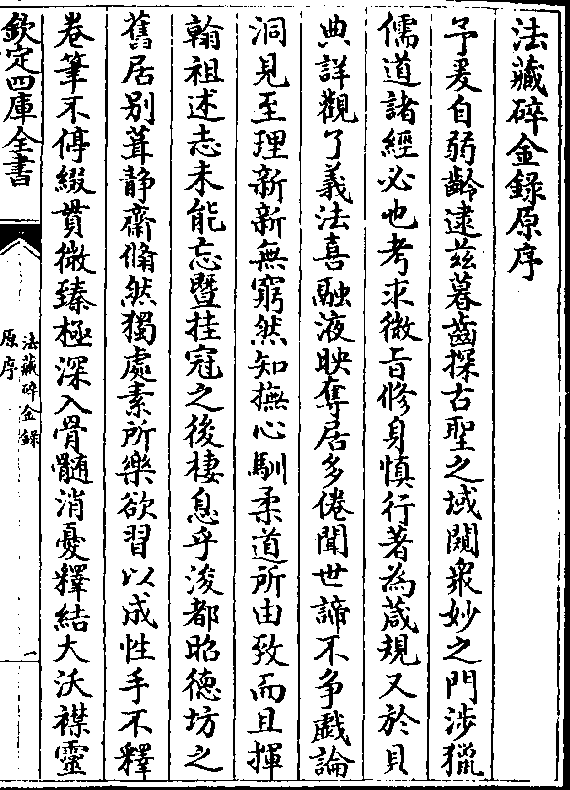 法藏碎金錄原序
予爰自弱齡逮兹暮齒探古聖之域闚衆妙之門涉獵
儒道諸經必也考求微旨修身慎行著為葴規又於貝
典詳觀了義法喜融液映奪居多倦聞世諦不爭戱論
洞見至理新新無窮然知撫心馴柔道所由致而且揮
翰祖述志未能忘暨挂冠之後棲息乎浚都昭德坊之
舊居别葺静齋翛然獨處素所樂欲習以成性手不釋
卷筆不停綴貫微臻極深入骨髄消憂釋結大沃襟靈
欽定四庫全書
法藏碎金錄
原序
一